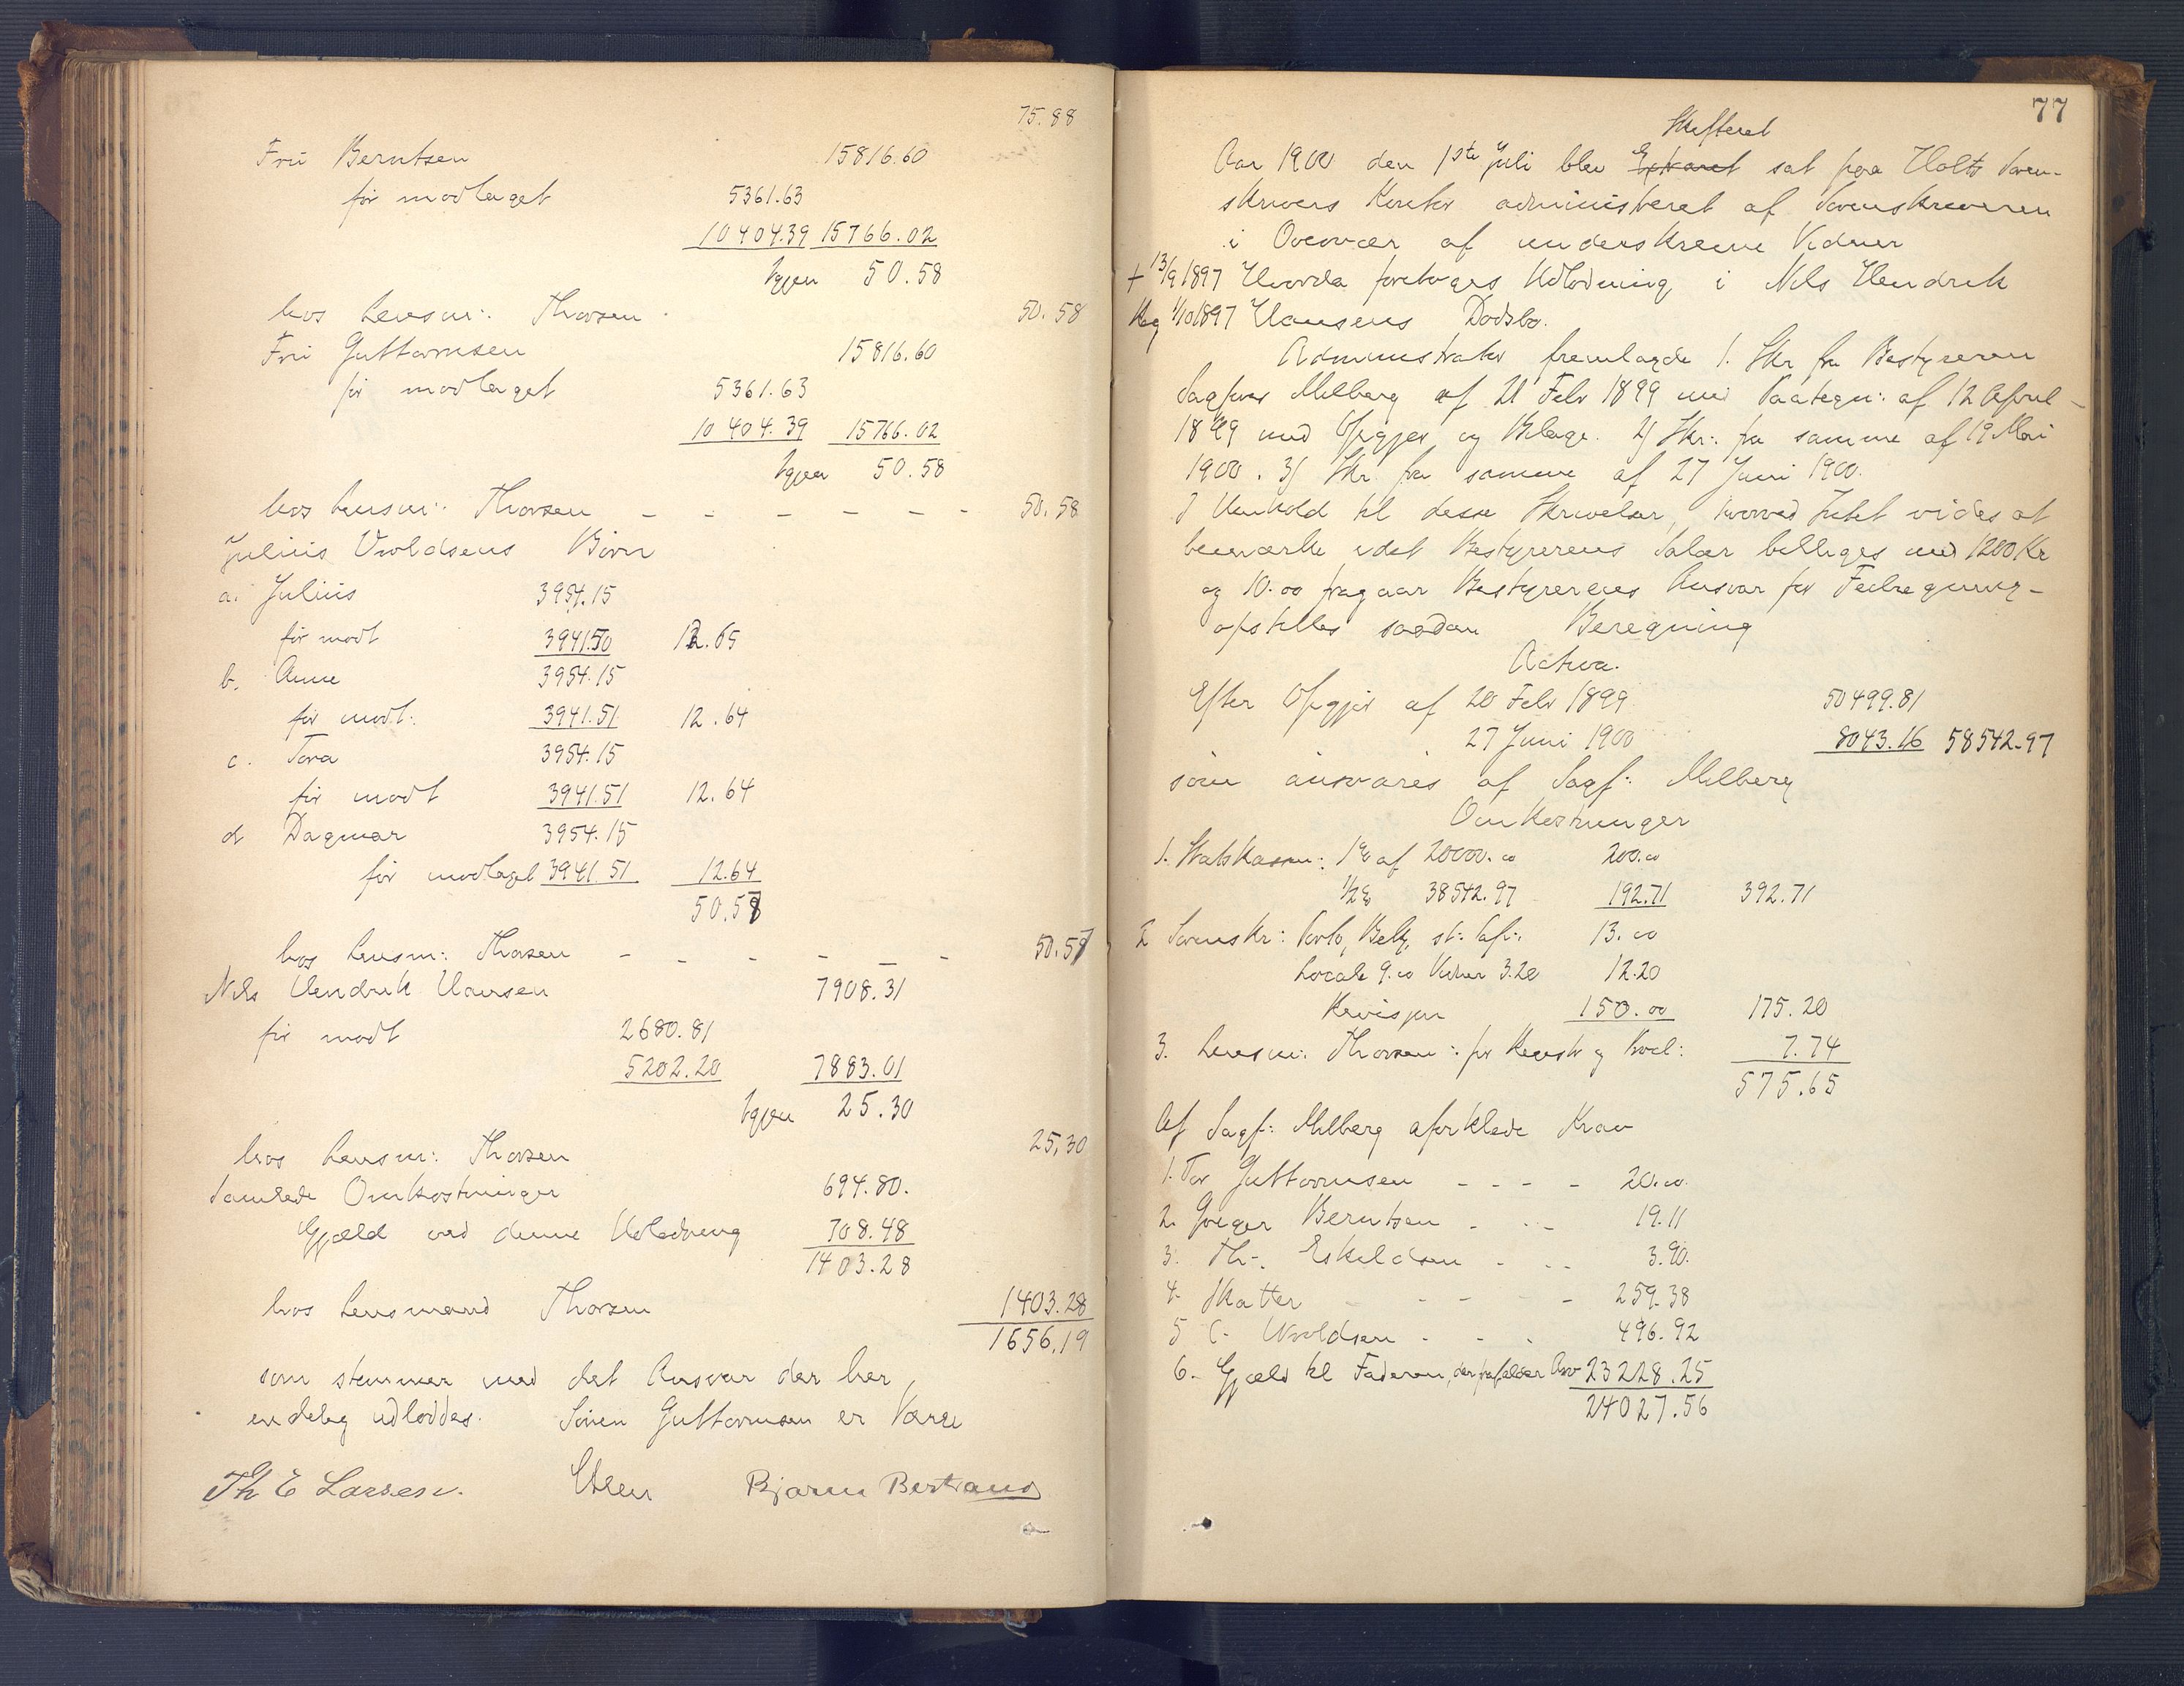 75.88
Fru Berntsen 15816.60
før modtaget 5361.63
10404.39 15766.02
Igjen 50.58
hos Lensm: Thorsen 50.58
Fru Guttormsen 15816.60
før modtaget 5361.63
10404.39 15766.02
Igjen 50.58
hos Lensm: Thorsen – – – – – – 50.58
Julius Uvoldsens Børn
a. Julius 3954.15
før modt 3941.50 12.65
b. Anne 3954.15
før modt: 3941.51 12.64
c. Tora 3954.15
før modt 3941.51 12.64
d Dagmar 3954.15
før modtaget 3941.51 12.64
50.57
hos Lensm: Thorsen – – – – – – 50.57
Nils Hendrik Hansen 7908.31
før modt 2680.81
5202.20 7883.01
Igjen 25.30
hos Lensm: Thorsen 25,30
Samlede Omkostninger 694.80.
Gjæld ved denne Udlodning 708.48
1403.28
hos Lensmand Thorsen 1403.28
1656.19
som stemmer med det Ansvar der her
endelig udloddes. Sören Guttormsen er Værge
Th E Larsen. Bjarne Bertrand
77
Skifteret
Aar 1900 den 1ste Juli blev sat paa Holts Soren-
skrivers Kontor administreret af Sorenskriveren
i Overvær af underskrevne Vidner
+ 13/9 1897 Hvorda foretoges Udlodning i Nils Hendrik
Reg 1/10 1897 Hansens Dødsbo.
Administrator fremlagde 1. Skr fra Bestyreren
Sagfører Milberg af 21 Febr 1899 med Paategn: af 12 April
1899 med Opgjør og Bilage. 2) Skr: fra samme af 19 Mai
1900. 3) Skr. fra samme af 27 Juni 1900.
I Henhold til disse Skrivelser, hvorved Intet vides at
bemærke idet Bestyrerens Salær billiges med 1200 Kr
og 10.00 fragaar Bestyrerens Ansvar for Feilregning –
opstilles saadan Beregning
Activa.
Efter Opgjør af 20 Febr 1899 50499.81
27 Juni 1900 8043.16 58542.97
som ansvares af Sagf: Milberg
Omkostninger
1. Statskassen: 1% af 20000.00 200.00
1/2% 38542.97 192.71 392.71
2 Sorenskr: Porto, Bekj. st: Pap:. 13.00
Locale 9.00 Vidner 3.20 12.20
Revisjon 150.00 175.20
3. Lensm: Thorsen: for Registr og Provl: 7.74
575.65
Af Sagf: Milberg afviklede Krav
1. Tor Guttormsen – – – – 20.00
2. Greger Berntsen – – – 19.11
3. Th. Eskildsen – – – 3.90.
4. Skatter – – – – – 259.38
5 C. Uvoldsen – – – 496.92
6. Gjæld til Faderen, der frafalder Arv 23228.25
24027.56